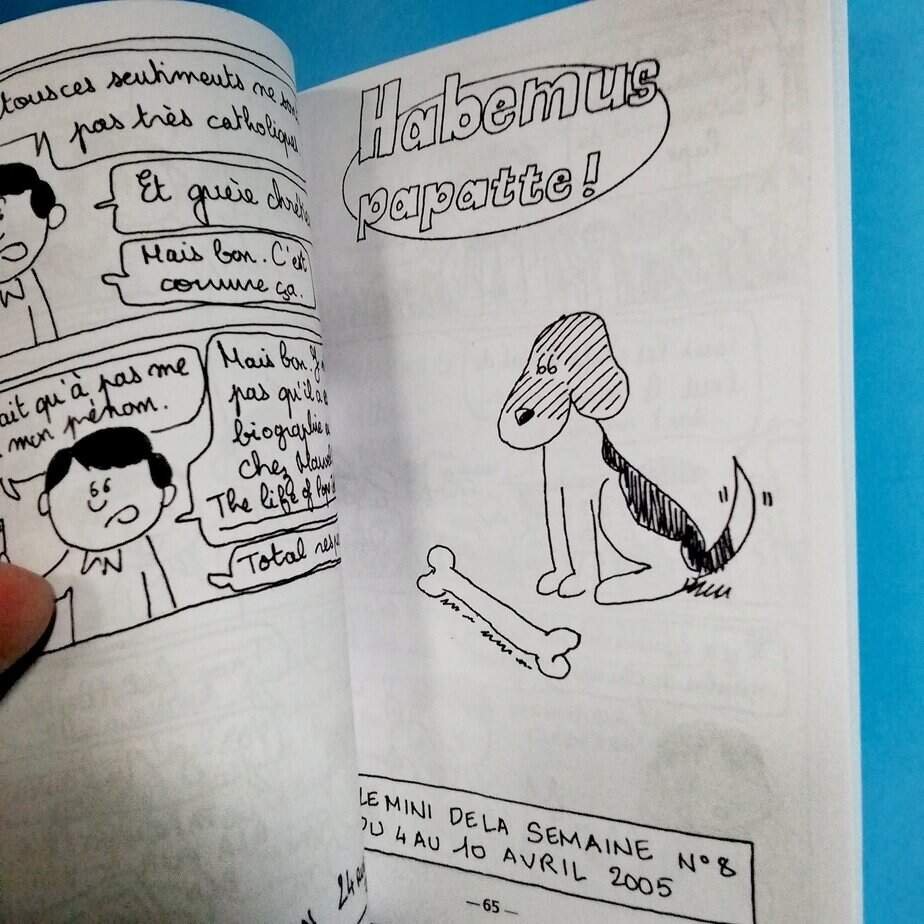 tous ces sentiments ne
pas très catholiques
Et guère
Mais bon. C'est
comme ça.
qu'à pas me
mon prénom.
Mais bon.
pas qu'il
biographie
chez
The life of
Total
Habemus
papatte!
LE MINI DE LA SEMAINE N°8
DU 4 AU 10 AVRIL 2005
24
—65—